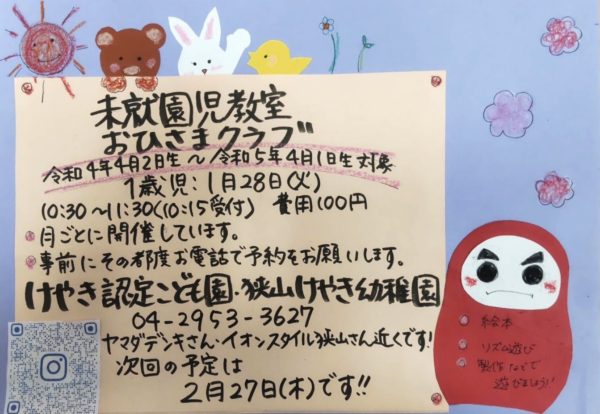 未就園児教室
おひさまクラブ
令和4年4月2日生～令和5年4月1日生対象
1歳児:1月28日(火)
10:30～11:30(10:15受付) 費用100円
月ごとに開催しています。
事前にその都度お電話で予約をお願いします。
けやき認定こども園・狭山けやき幼稚園
04-2953-3627
ヤマダデンキさん・イオンスタイル狭山さん近くです!
次回の予定は
2月27日(木)です!!
絵本
リズム遊び
製作などで
遊びましょう!